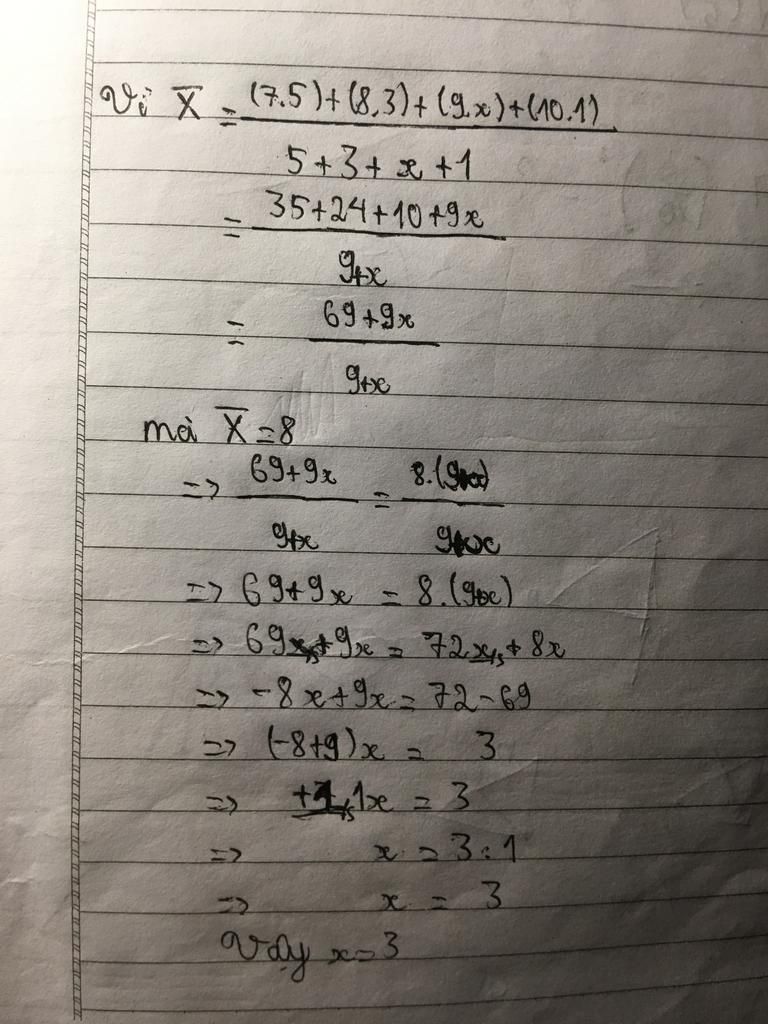 Vì X̅ = (7.5)+(8.3)+(9.x)+(10.1)
5+3+x+1
= 35+24+10+9x
9+x
= 69+9x
9+x
mà X̅ = 8
=> 69+9x = 8.(9+x)
9+x 9+x
=> 69+9x = 8.(9+x)
=> 69+9x = 72+8x
=> -8x+9x = 72-69
=> (-8+9)x = 3
=> 1x = 3
=> x = 3:1
=> x = 3
Vậy x=3